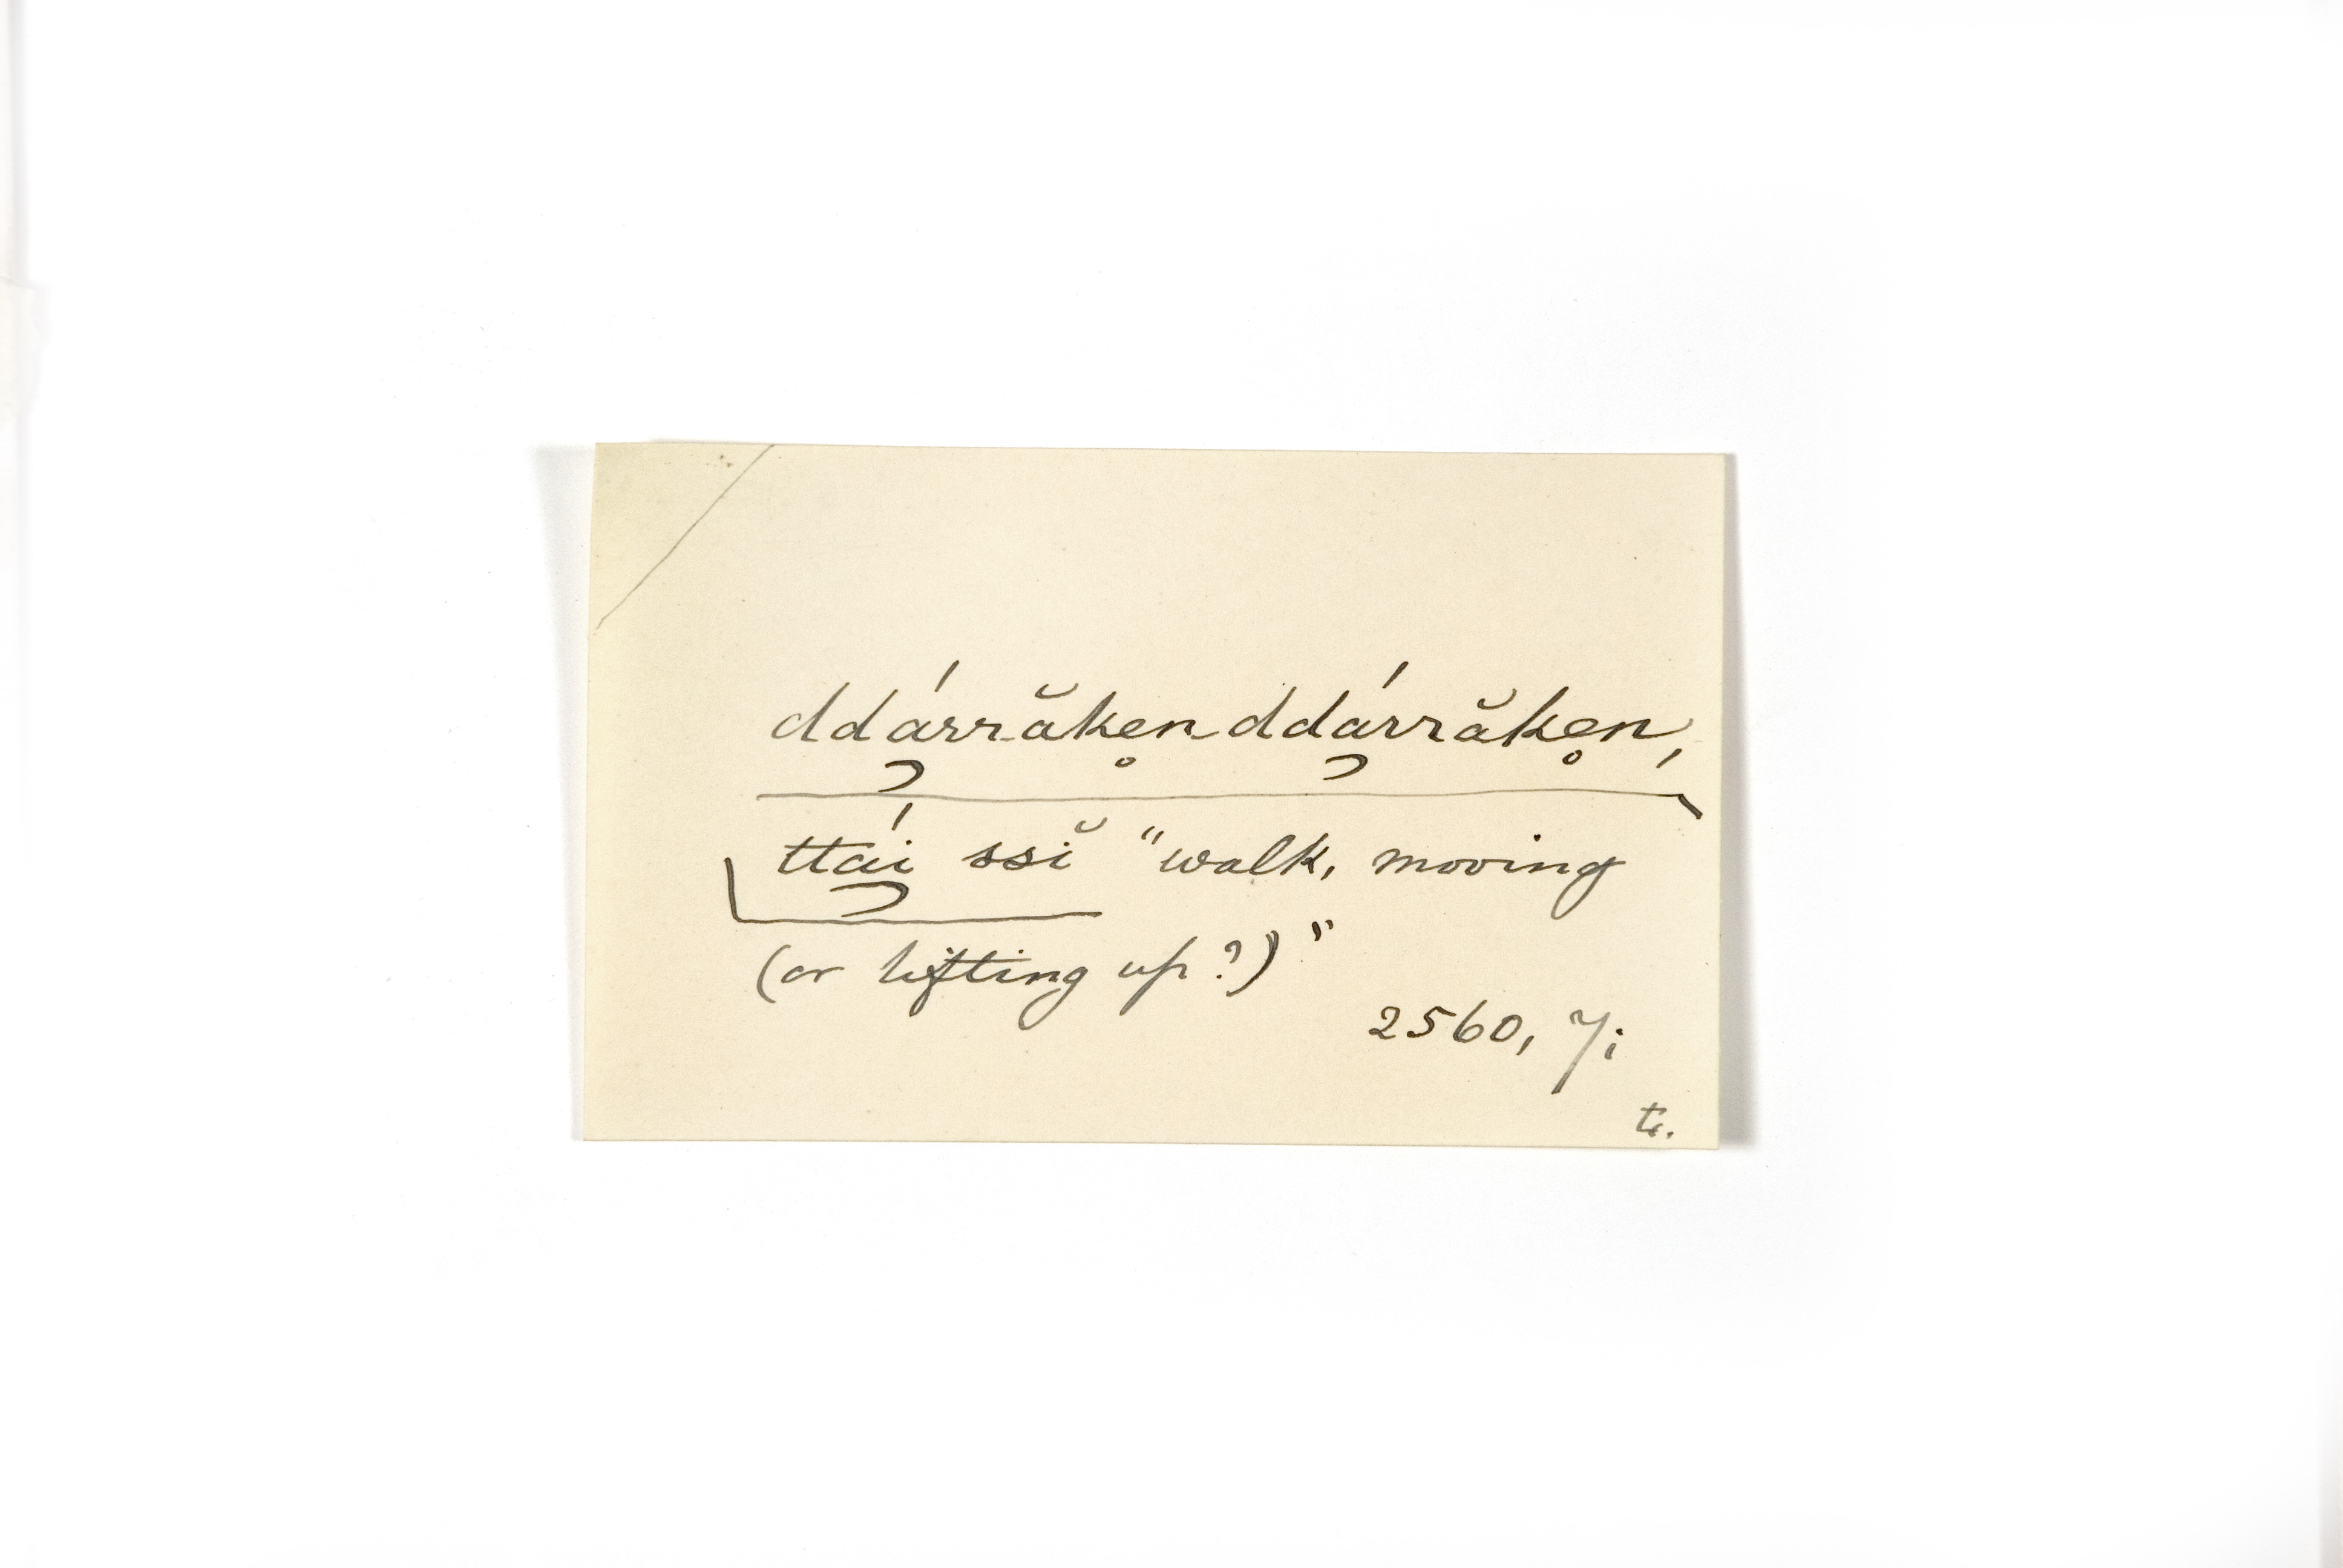 ddá̯rrăke̥n ddá̯rrăke̥n,
ttá̯i ssĭ "walk, moving
(or lifting up?)"
2560, 7;
tr.